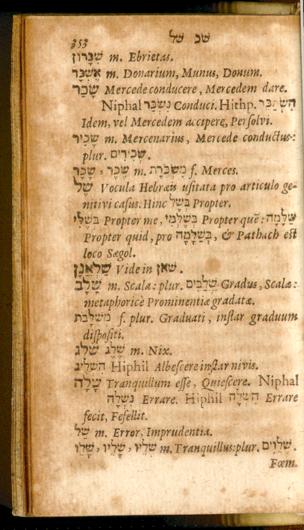 353 שכ של
שִׁכָּרוֹן m. Ebrietas.
אֶשְׁכָּר m. Donarium, Munus, Donum.
שָׂכַר Mercede conducere, Mercedem dare.
Niphal נִשְׂכַּר Conduci. Hithp. הִשְׂתַּכֵּר
Idem, vel Mercedem accipere, Persolvi.
שָׂכִיר m. Mercenarius, Mercede conductus:
plur. שְׂכִירִים.
שָׂכָר, שֶׂכֶר m. מַשְׂכֹּרֶת f. Merces.
שֶׁל Vocula Hebræis usitata pro articulo ge-
nitivi casus. Hinc בְּשֶׁל Propter.
בְּשֶׁלִּי Propter me, בְּשֶׁלְּמִי Propter quē: שַׁלָּמָה
Propter quid, pro בְּשֶׁלָּמָה, & Pathach est
loco Sægol.
שַׁלְאֲנָן Vide in שאן.
שָׁלָב m. Scala: plur. שְׁלַבִּים Gradus, Scalæ:
metaphoricè Prominentiæ gradatæ.
מְשֻׁלָּבֹת f. plur. Graduati, instar graduum
dispositi.
שלג שֶׁלֶג m. Nix.
הִשְׁלִיג Hiphil Albescere instar nivis.
שָׁלָה Tranquillum esse, Quiescere. Niphal
נִשְׁלָה Errare. Hiphil הִשְׁלָה Errare
fecit, Fefellit.
שַׁל m. Error, Imprudentia.
שָׁלֵו, שָׁלֵיו, שְׁלֵיו m. Tranquillus: plur. שְׁלֵוִים.
Fœm.